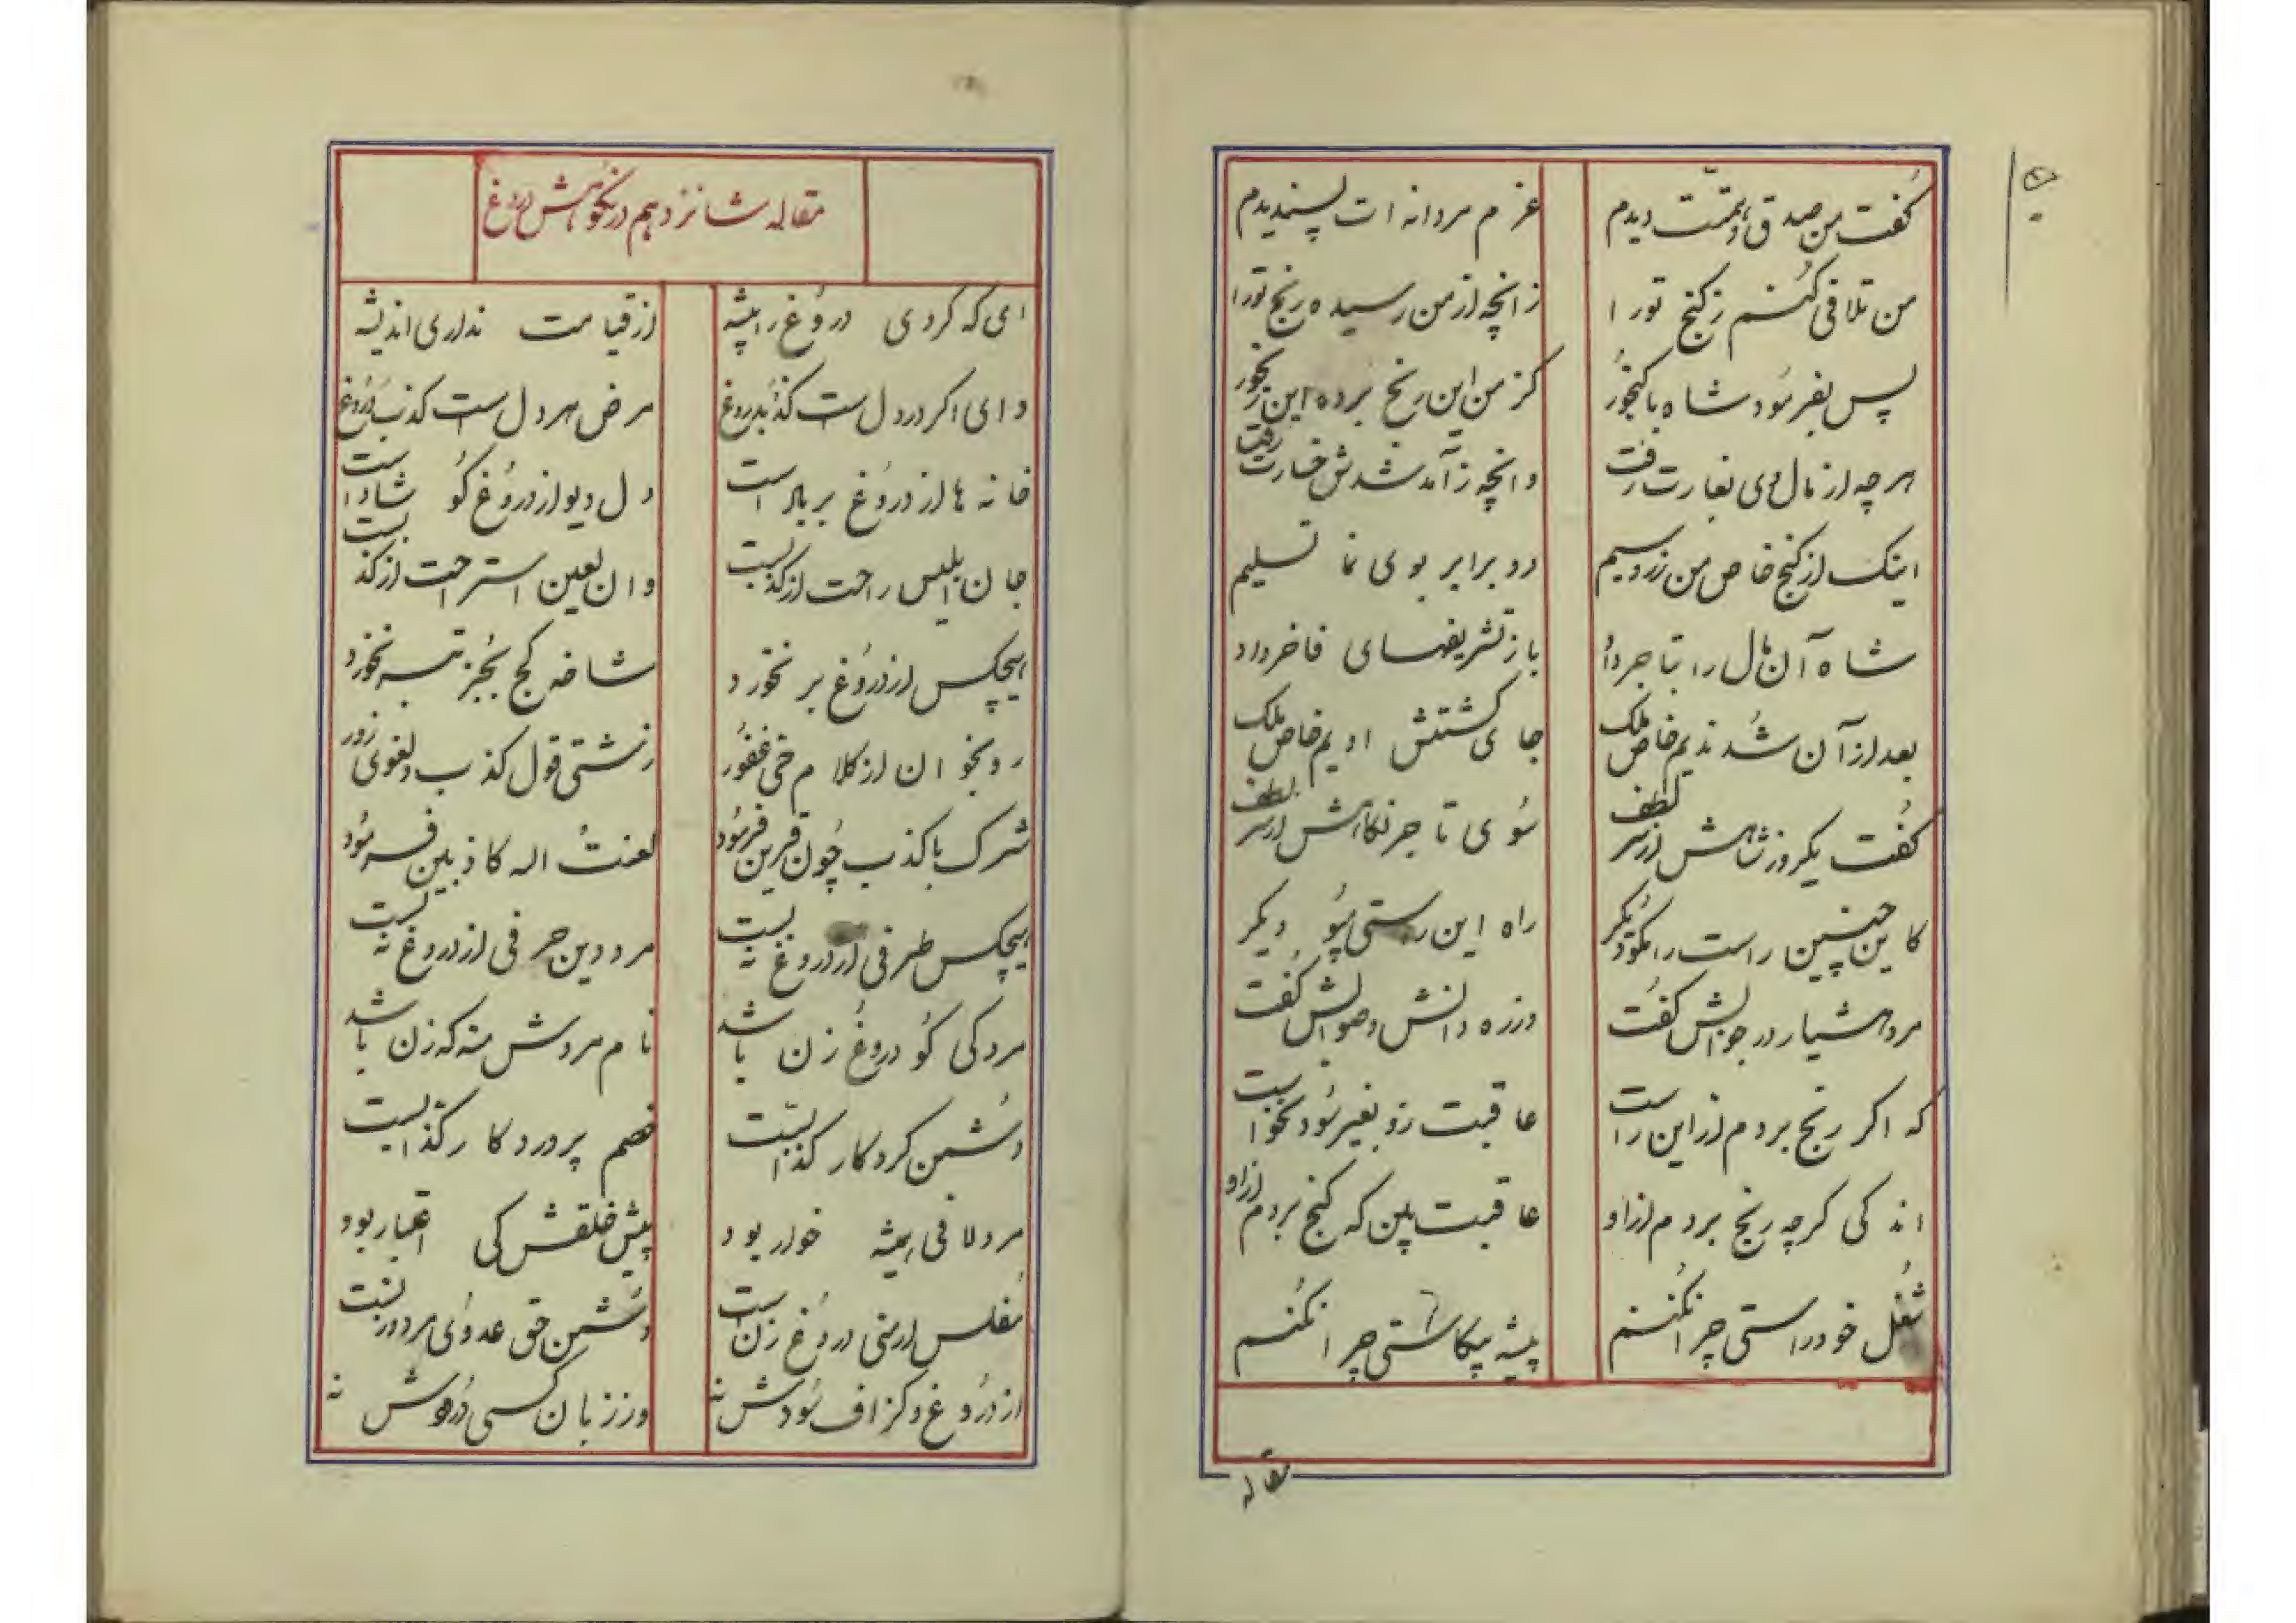 گفت من صدق و همتت دیدم    عزم مردانه ات پسندیدم
من تلافی کنم ز گنج تو را    زانچه از من رسیده رنج تو را
پس بفرمود شاه با گنجور    کز من این رنج برده این رنجور
هرچه از مال وی بغارت رفت    وانچه ز آمد شدش خسارت رفت
اینک از گنج خاص من زر و سیم    دو برابر بوی نما تسلیم
شاه آن مال را بتاجر داد    باز تشریفهای فاخر داد
بعد از آن شد ندیم خاص ملک    جای کشتنش ادیم خاص ملک
گفت یکروز شاهش از سر لطف    سوی تاجر نگاهش از سر لطف
کاین چنین راست را مگو دیگر    راه این راستی مپو دیگر
مرد هشیار در جوابش گفت    وز ره دانش و صوابش گفت
که اگر رنج بردم از این راست    عاقبت زو بغیر سود نخواست
اندکی گرچه رنج بردم از او    عاقبت بین که گنج بردم از او
شغل خود راستی چرا نکنم    پیشه بیکاستی چرا نکنم
مقاله
مقاله شانزدهم در نکوهش دروغ
ای که کردی دروغ را پیشه    از قیامت نداری اندیشه
وای اگر در دل است کذب و دروغ    مرض هر دل است کذب و دروغ
خانه ها از دروغ بر باد است    دل دیو از دروغ گو شاد است
جان ابلیس راحت از کذبست    وان لعین استراحت از کذبست
هیچکس از دروغ بر نخورد    شاخه کج بجز تبر نخورد
رو بخوان از کلام حی غفور    زشتی قول کذب و لغوی زور
شرک با کذب چون قرین فرمود    لعنت اله کاذبین فرمود
هیچکس طرفی از دروغ نه بست    مرد دین حرفی از دروغ نه بست
مردکی کو دروغ زن باشد    نام مردش منه که زن باشد
دشمن کردکار کذابست    خصم پروردکار کذابست
مرد لافی همیشه خوار بود    پیش خلقش کی اعتبار بود
مفلس ارمنی دروغ زن است    دشمن حق عدوی مرد و زنست
از دروغ و گزاف سودش نه    وز زبان کسی درودش نه